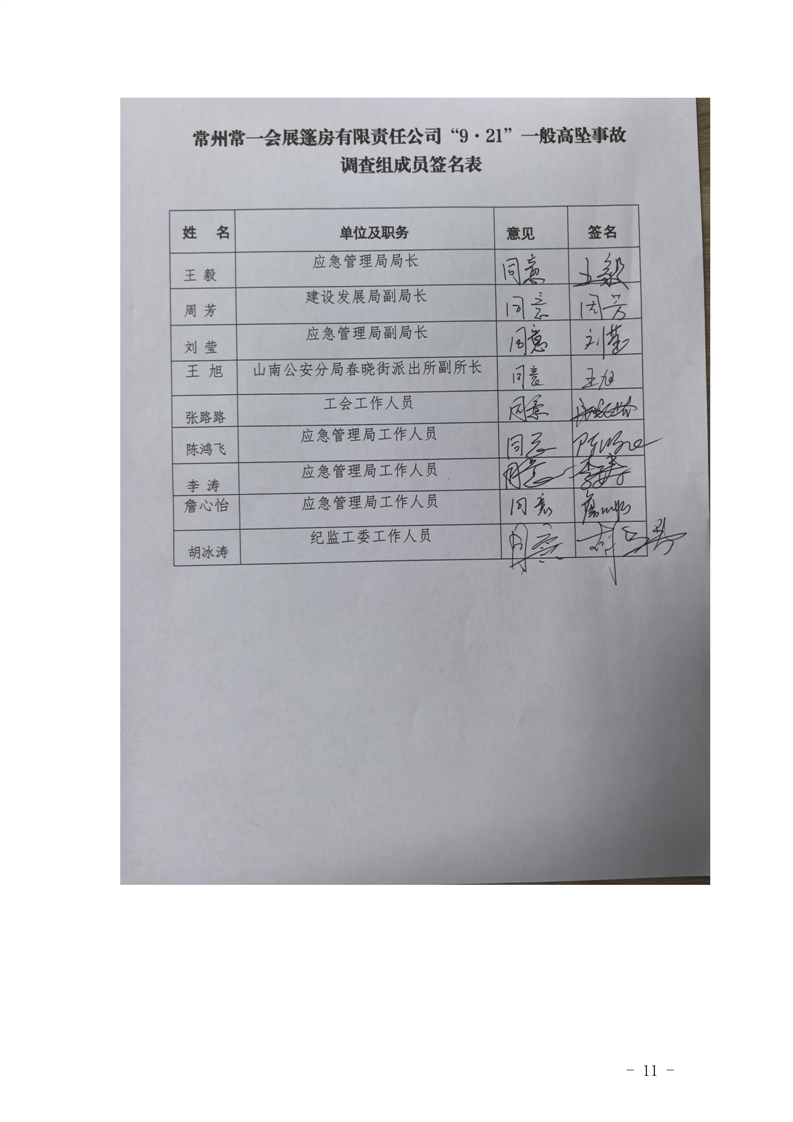 常州常一会展篷房有限责任公司“9·21”一般高坠事故
调查组成员签名表
姓 名 单位及职务 意见 签名
王 毅 应急管理局局长 同意 王毅
周 芳 建设发展局副局长 同意 周芳
刘 莹 应急管理局副局长 同意 刘莹
王 旭 山南公安分局春晓街派出所副所长 同意 王旭
张路路 工会工作人员 同意
陈鸿飞 应急管理局工作人员 同意
李 涛 应急管理局工作人员 同意 李涛
詹心怡 应急管理局工作人员 同意 詹心怡
胡冰涛 纪监工委工作人员 同意
- 11 -